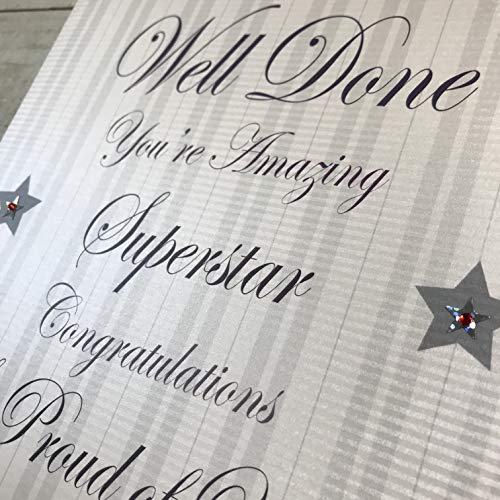 Well Done
You're Amazing
Superstar
Congratulations
Proud of